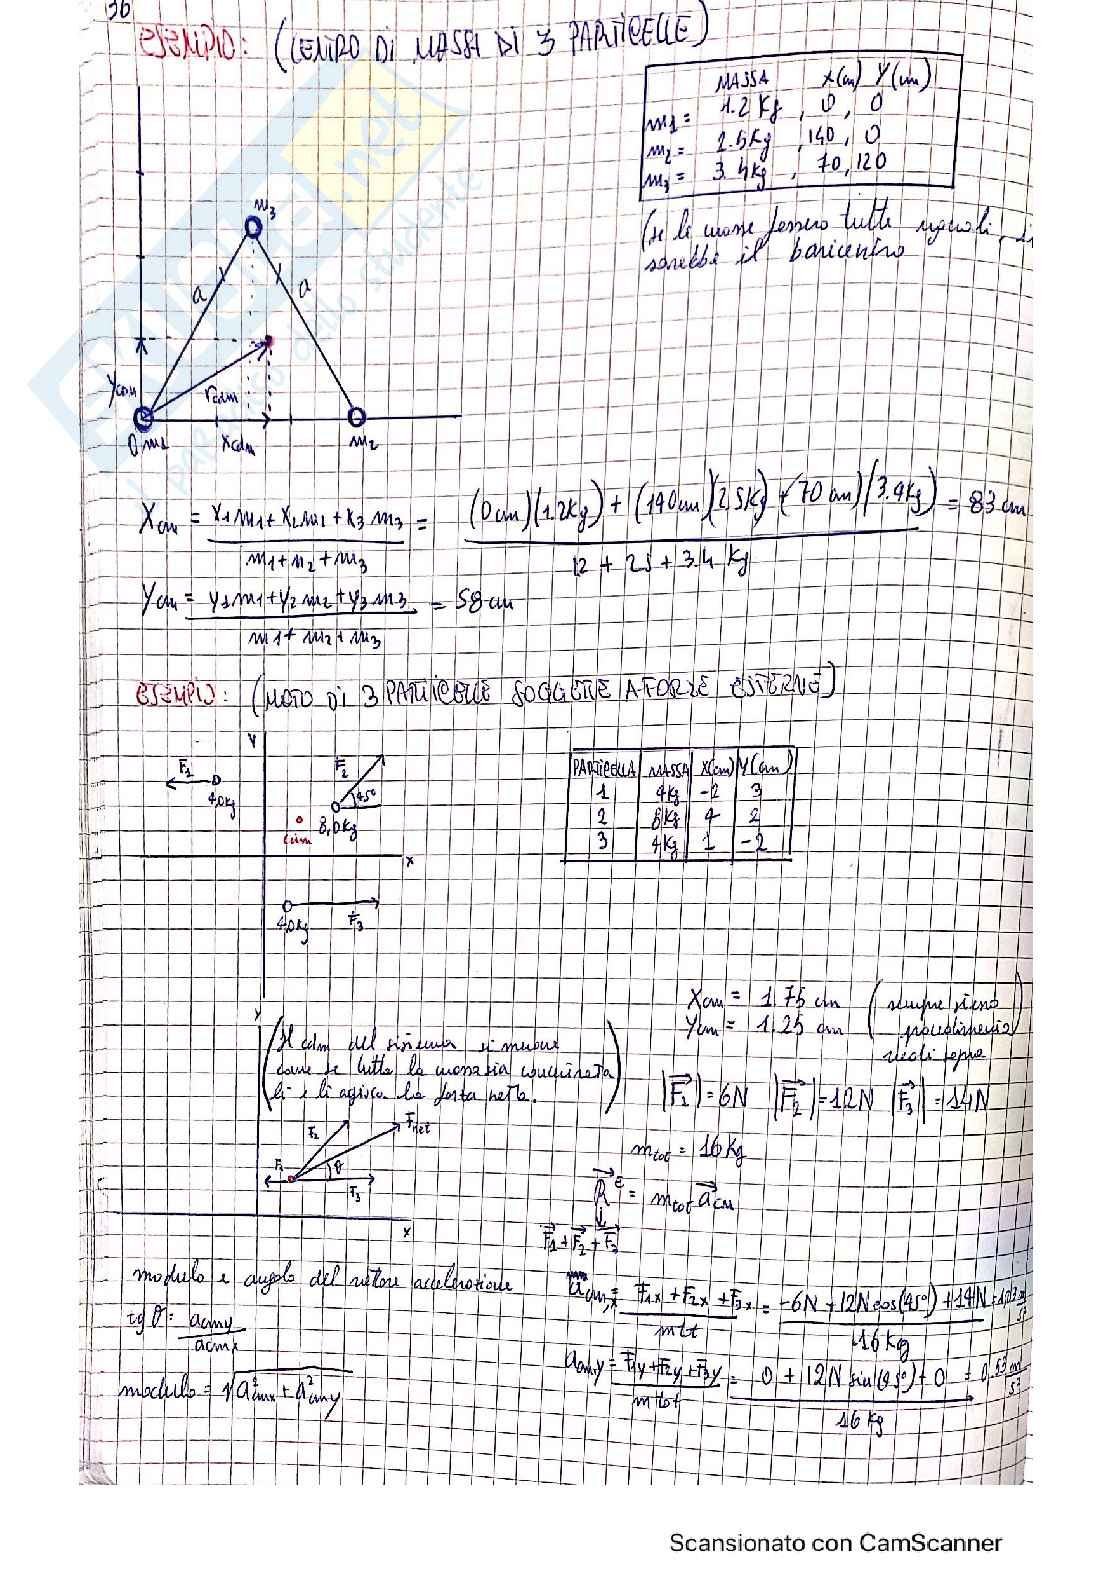 36
ESEMPIO: (CENTRO DI MASSA DI 3 PARTICELLE)
MASSA X(cm) Y(cm)
m1 = 1.2 Kg, 0, 0
m2 = 2.5 Kg, 140, 0
m3 = 3.4 Kg, 70, 120
(se le masse fossero tutte uguali,
sarebbe il baricentro
m3
a
a
ycdm
rcdm
0 m1
xcdm
m2
Xcm = x1m1+x2m2+x3m3 / m1+m2+m3 = (0cm)(1.2Kg) + (140cm)(2,5Kg) + (70cm)(3.4Kg) / 1.2 + 2.5 + 3.4 Kg = 83 cm
Ycm = y1m1+y2m2+y3m3 / m1+m2+m3 = 58 cm
ESEMPIO: (MOTO DI 3 PARTICELLE SOGGETTE A FORZE ESTERNE)
y
F1
4,0kg
F2
45°
8,0kg
cdm
x
4,0kg
F3
PARTICELLA MASSA X(cm) Y(cm)
1 4Kg -2 3
2 8Kg 4 2
3 4Kg 1 -2
Xcm = 1,75 cm (sempre stesso
Ycm = 1,25 cm procedimento
sopra)
y
(Il cdm del sistema si muove
come se tutta la massa sia concentrata
lì e lì agisca la forza netta.)
|F1| = 6N |F2| = 12N |F3| = 14N
F2
Fnet
F1
θ
F3
x
mtot = 16 Kg
R^E = mtot acm
F1 + F2 + F3
modulo e angolo del vettore accelerazione
tg θ = acmy / acmx
modulo = √a²cmx + a²cmy
acm,x = F1x + F2x + F3x / mtot = -6N + 12N cos(45°) + 14N / 16 Kg
acm,y = F1y + F2y + F3y / mtot = 0 + 12N sin(45°) + 0 / 16 Kg
SKUOLA.net
Il paradiso dello studente
Scansionato con CamScanner